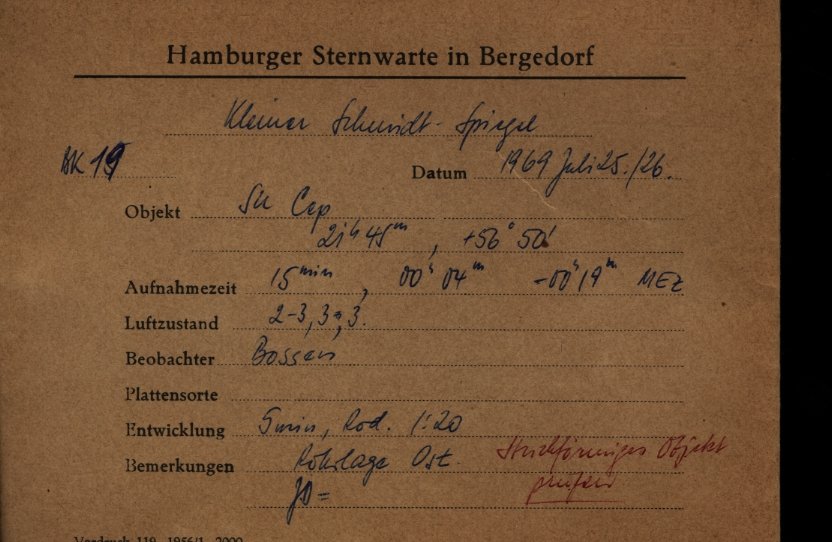 Hamburger Sternwarte in Bergedorf
Kleiner Schmidt-Spiegel
BK 19 Datum 1969 Juli 25./26.
Objekt SU Cep
21ʰ 45ᵐ, +56° 50'
Aufnahmezeit 15 min, 00ʰ 04ᵐ -00ʰ 19ᵐ MEZ
Luftzustand 2-3, 3, 3.
Beobachter Bossen
Plattensorte
Entwicklung 5 min, Rod. 1:20
Bemerkungen Rohrlage Ost. Strichförmiges Objekt
prüfen
JD =
Vordruck 119 1956/1 2000